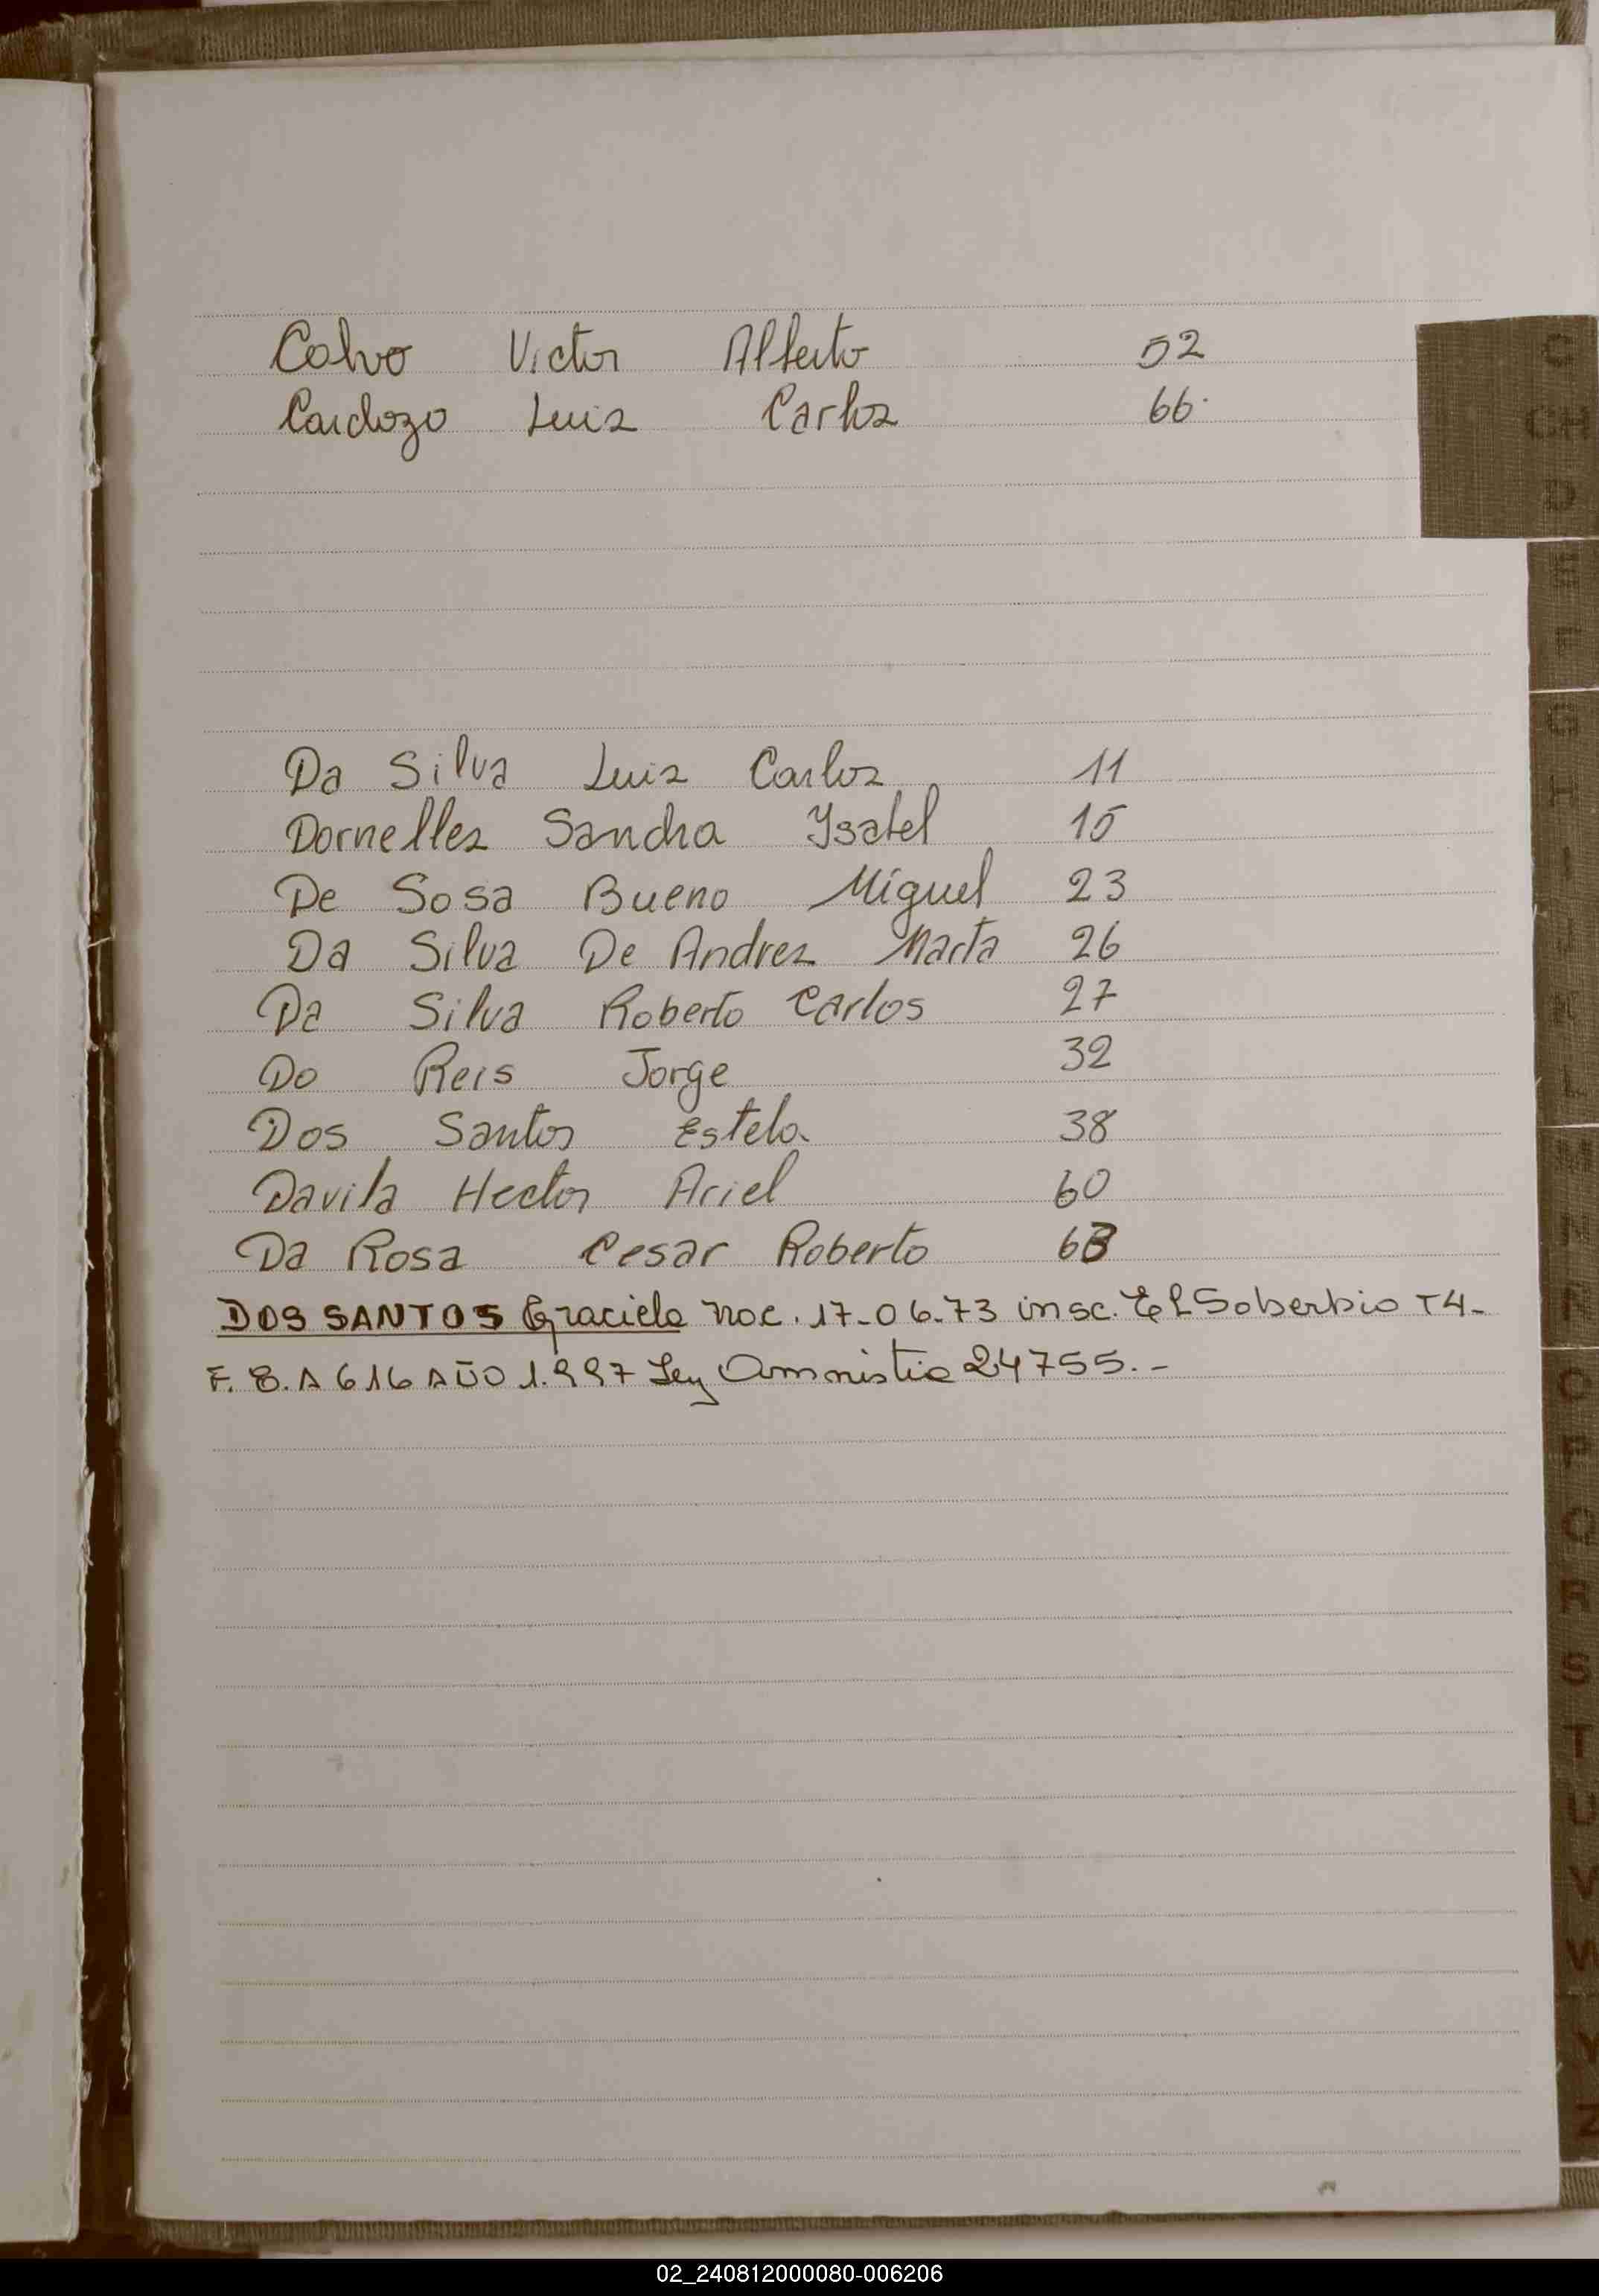 Calvo Victor Alberto 52
Cardozo Luis Carlos 66
Da Silva Luis Carlos 11
Dornelles Sandra Ysabel 15
De Sosa Bueno Miguel 23
Da Silva De Andres Marta 26
Da Silva Roberto Carlos 27
Do Reis Jorge 32
Dos Santos Estela 38
Davila Hector Ariel 60
Da Rosa Cesar Roberto 63
DOS SANTOS Graciela nac. 17-06-73 insc. El Soberbio T4-
F. 8. A 616 AÑO 1.997 Ley Amnistia 24755.-
C
CH
D
E
F
G
H
I
J
K
L
M
N
Ñ
O
P
Q
R
S
T
U
V
W
Y
Z
02_240812000080-006206